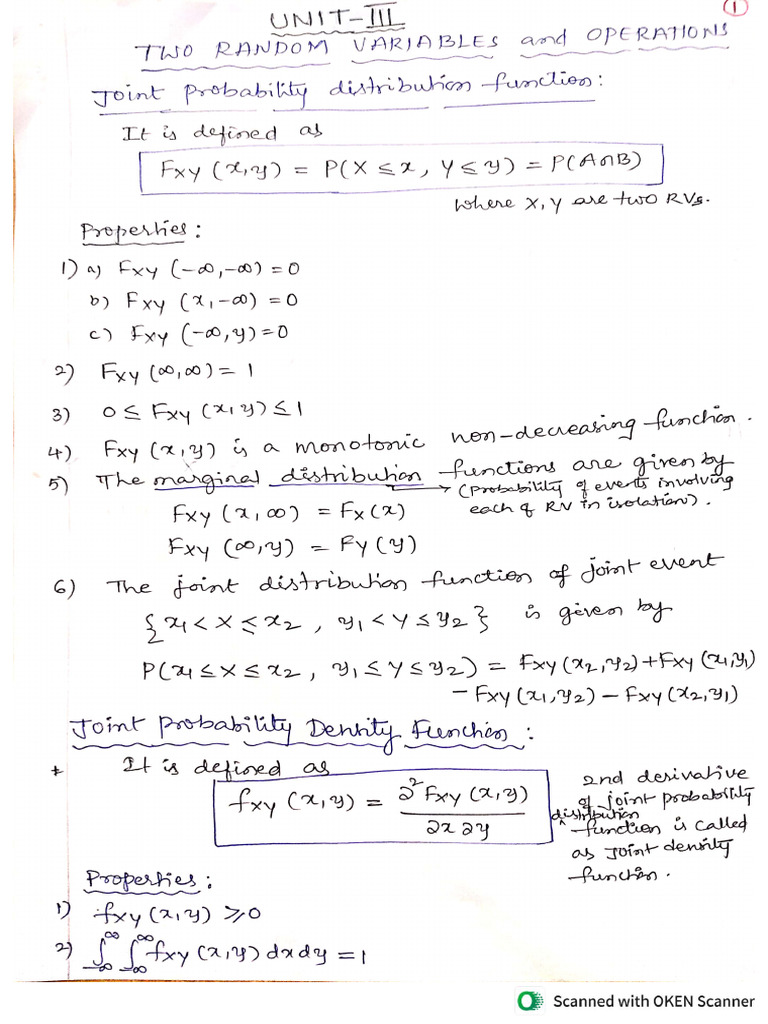 1
UNIT-III
TWO RANDOM VARIABLES and OPERATIONS
Joint Probability distribution function:
It is defined as
Fxy (x,y) = P(X ≤ x, Y ≤ y) = P(A∩B)
where X, Y are two RVs.
Properties:
1) a) Fxy (-∞,-∞) = 0
b) Fxy (x,-∞) = 0
c) Fxy (-∞,y) = 0
2) Fxy (∞,∞) = 1
3) 0 ≤ Fxy (x,y) ≤ 1
4) Fxy (x,y) is a monotonic non-decreasing function.
5) The marginal distribution functions are given by
→ (Probability of events involving
each of RV in isolation).
Fxy (x,∞) = Fx(x)
Fxy (∞,y) = Fy(y)
6) The joint distribution function of joint event
{x1 < X ≤ x2, y1 < Y ≤ y2} is given by
P(x1 ≤ X ≤ x2, y1 ≤ Y ≤ y2) = Fxy(x2,y2) + Fxy(x1,y1)
- Fxy(x1,y2) - Fxy(x2,y1)
Joint Probability Density Function:
* It is defined as
fxy (x,y) = ∂²Fxy (x,y) / ∂x ∂y
2nd derivative
of joint probability
distribution ^ function is called
as Joint density
function.
Properties:
1) fxy (x,y) ≥ 0
2) ∫-∞^∞ ∫-∞^∞ fxy (x,y) dx dy = 1
Scanned with OKEN Scanner